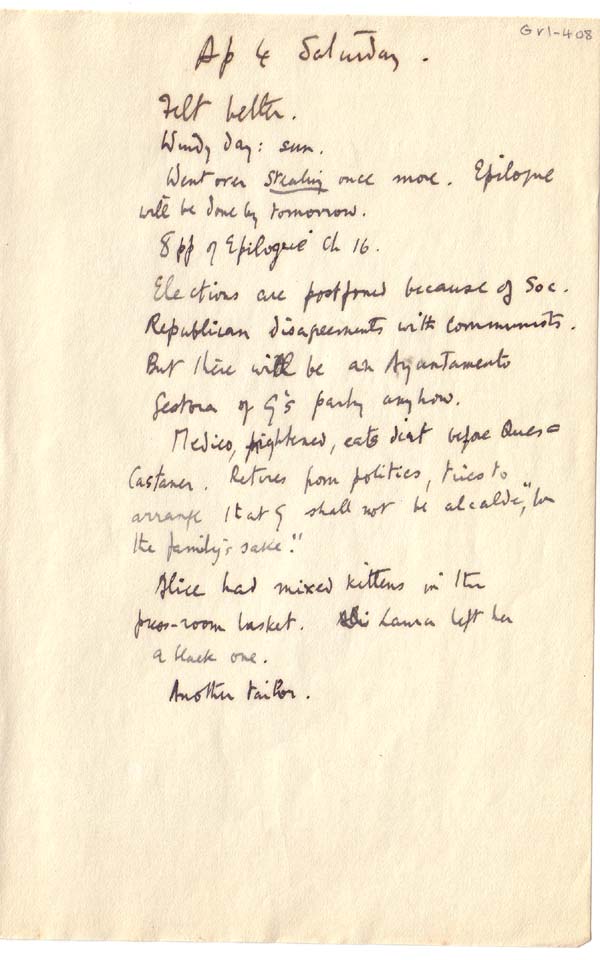 Gr1-408
Ap 4 Saturday.
Felt better.
Windy day: sun.
Went over Stealing once more. Epilogue
will be done by tomorrow.
8 pp of Epilogue Ch 16.
Elections are postponed because of Soc.
Republican disagreements with communists.
But there will be an Ayuntamento
Gestora of G's party anyhow.
Medico, frightened, eats dirt before Ques=
Castaner. Retires from politics, tries to
arrange that G shall not be alcalde, "for
the family's sake."
Alice had mixed kittens in the
press-room basket. Laura left her
a black one.
Another tailor.